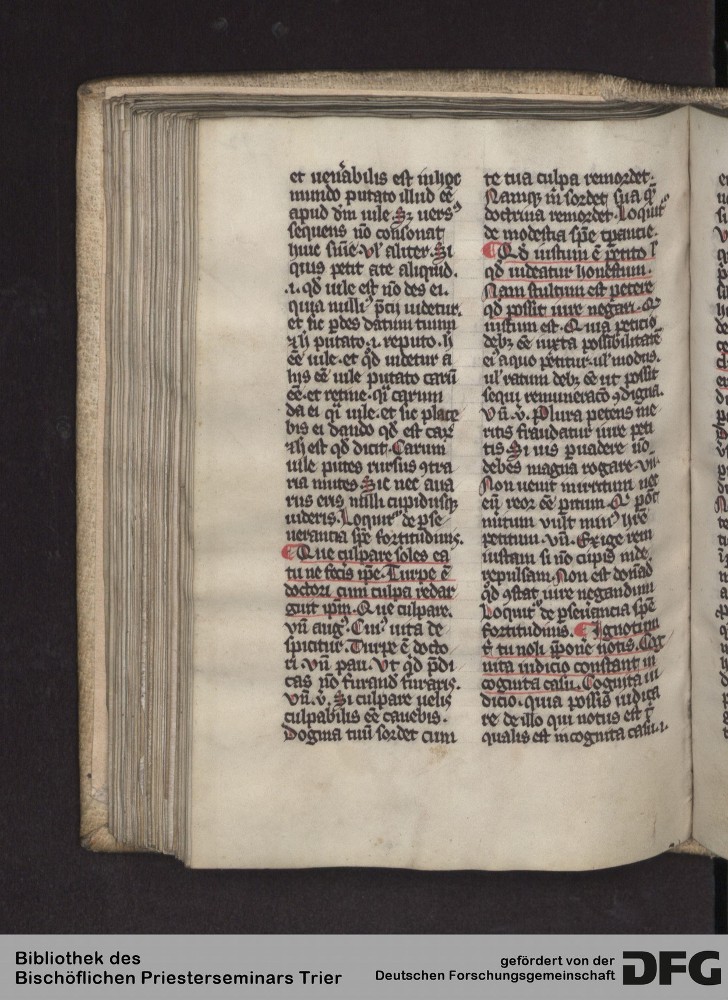 et uen̄abilis est in hoc
mundo putato illud eē
apud dm̄ uile. Sꝫ uers9
sequens nō consonat
huic sūie. Vl' aliter. Si
quis petit a te aliquid.
.i. qđ uile est nō des ei.
quia nulli p̄cii uidetur.
et sic ꝑdes datum tuum
putato .i. reputo. ħ
eē uile. et qđ uidetur a
hiis eē uile putato carū
eē. et retine. qi carum
da ei qi uile. et sic place
bis ei dando qđ est car
est qđ dicit. Carum
uile putes rursus ꝯtra
ria mutes. Sic nec aua
rus eris nulli cupidusqꝫ
uideris. Loquit̉ de ꝑse
uerantia sp̄e fortitudinis.
Que culpare soles ea
tu ne fecis ip̄e. Turpe ē
doctori cum culpa redar
guit ip̄m. Que culpare.
vn̄ aug9. Cui9 uita de
spicitur. Turpe ē docto
ri. vn̄ pau. Vt qđ p̄di
cas nō furand furaris.
vn̄. v̉. Si culpare uelis
culpabilis eē cauebis.
Dogma tuū sordet cum
te tua culpa remordet.
Namqꝫ in sordet sua qn̄
doctrina remordet. Loquit̉
de modestia sp̄e tp̄antie.
Qđ iustum ē petito l'
qđ uideatur honestum.
Nam stultum est petere
qđ possit iure negari. Qđ
iustum est. Quia peticio
debꝫ eē iuxta possibilitatē
ei a quo petitur. ul' modus.
ul' ratum debꝫ eē ut possit
sequi remuneracō ꝯdigna.
vn̄. v̉. Plura petens me
ritis fraudatur iure peti
tis. Si uis ꝑuadere nō
debes magna rogare. vn̄.
Non uenit
petitum. vn̄. Exige rem
iustam si nō cupis inde
repulsam. Non est donād
qđ ꝯstat iure negandum
Loquit̉ de ꝑseuantia sp̄e
fortitudinis. Ignotum
t̉ tu noli p̄ponē notis. Cog
nita iudicio constant in
cognita casu. Cognita iu
dicio. quia possis iudica
re de illo qui notus est t̉
qualis est incognita casu. .i.
Bibliothek des
Bischöflichen Priesterseminars Trier
gefördert von der
Deutschen Forschungsgemeinschaft
DFG